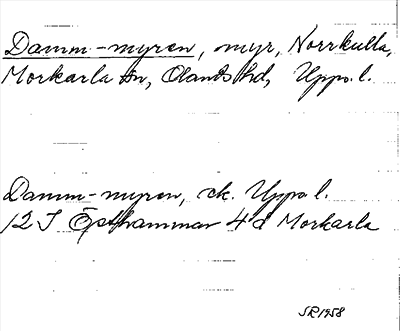 Damm-myren, myr, Norrkulla,
Morkarla sn, Olands hd, Upps. l.
Damm-myren, ek. Upps. l.
12 I Östhammar 4 d Morkarla
SR 1958